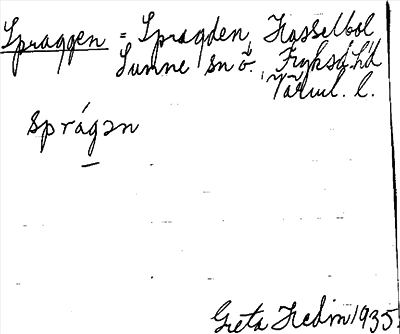 Spraggen = Spragden, Hasselbol
Sunne sn ö. Fryksd. hd
Värml. l.
sprágən
Greta Hedin 1935